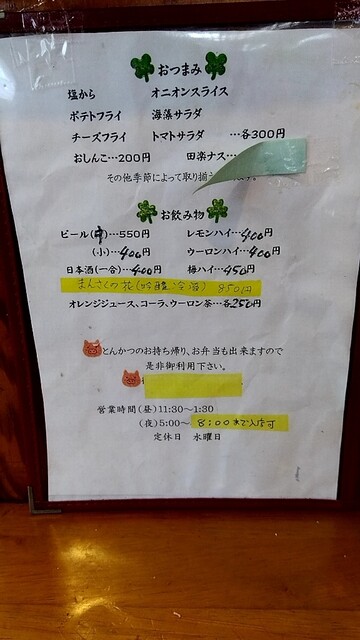 おつまみ
塩から オニオンスライス
ポテトフライ 海藻サラダ
チーズフライ トマトサラダ …各300円
おしんこ…200円 田楽ナス…
その他季節によって取り揃
お飲み物
ビール(中)…550円 レモンハイ…400円
(小)…400円 ウーロンハイ…400円
日本酒(一合)…400円 梅ハイ…450円
まんさくの花(吟醸冷酒) 850円
オレンジジュース、コーラ、ウーロン茶…各250円
とんかつのお持ち帰り、お弁当も出来ますので
是非御利用下さい。
営業時間(昼)11:30～1:30
(夜)5:00～8:00まで入店可
定休日 水曜日